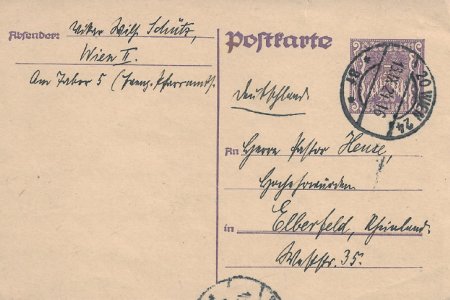 Absender: Vikar Wilh. Schütz,
Wien II.
Am Tabor 5 (Evang. Pfarramt).
Postkarte
Deutschland.
An Herrn Pastor Henze,
Hochehrwürden
in Elberfeld, Rheinland.
Weststr. 35.
20 WIEN 24